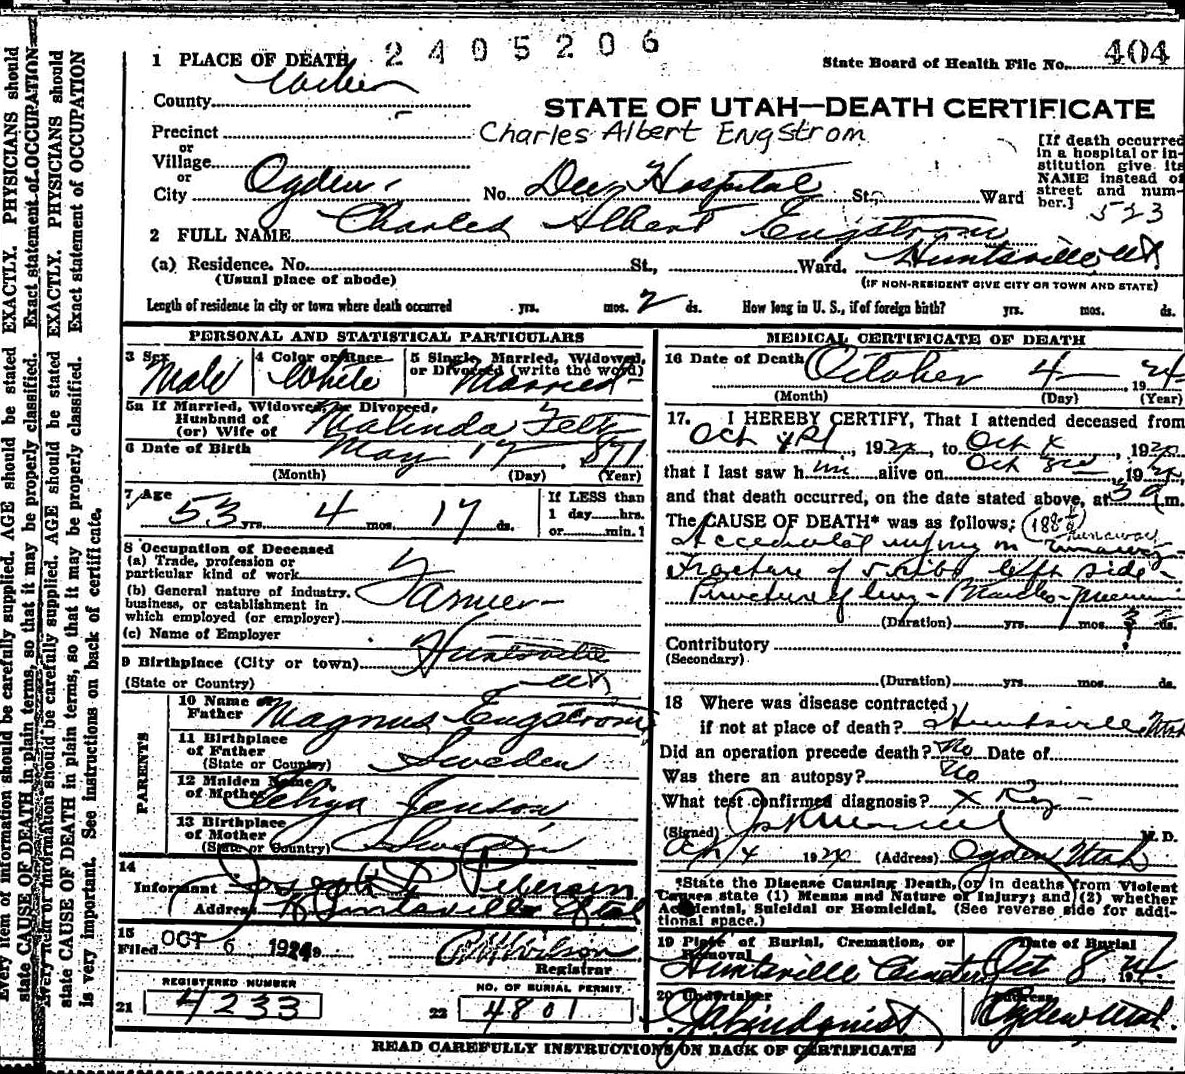 2405206
State Board of Health File No. 404
1 PLACE OF DEATH
County Weber
STATE OF UTAH—DEATH CERTIFICATE
Precinct
Charles Albert Engstrom
or
Village
or
City Ogden No. Dee Hospital St. Ward
[If death occurred in a hospital or institution give its NAME instead of street and number.]
523
2 FULL NAME Charles Albert Engstrom
(a) Residence. No. St., Ward. Huntsville Ut
(Usual place of abode) (IF NON-RESIDENT GIVE CITY OR TOWN AND STATE)
Length of residence in city or town where death occurred yrs. mos. 2 ds. How long in U. S., if of foreign birth? yrs. mos. ds.
PERSONAL AND STATISTICAL PARTICULARS
3 Sex Male
4 Color or Race White
5 Single, Married, Widowed, or Divorced (write the word) Married
5a If Married, Widowed, or Divorced,
Husband of
(or) Wife of Malinda Felt
6 Date of Birth May 17, 871
(Month) (Day) (Year)
7 Age 53 yrs. 4 mos. 17 ds.
If LESS than
1 day hrs.
or min. ?
8 Occupation of Deceased
(a) Trade, profession or
particular kind of work
(b) General nature of industry,
business, or establishment in
which employed (or employer)
Farmer
(c) Name of Employer
9 Birthplace (City or town) Huntsville
(State or Country) Ut
PARENTS
10 Name of
Father Magnus Engstrom
11 Birthplace
of Father
(State or Country) Sweden
12 Maiden Name
of Mother Jenson
13 Birthplace
of Mother
(State or Country) Sweden
14
Informant Joseph L Petersen
Address Huntsville Utah
15
Filed OCT 6 1924
Wilson
Registrar
REGISTERED NUMBER
21 4233
NO. OF BURIAL PERMIT
22 4801
MEDICAL CERTIFICATE OF DEATH
16 Date of Death October 4 1924
(Month) (Day) (Year)
17. I HEREBY CERTIFY, That I attended deceased from
Oct 1924, to Oct 4, 1924
that I last saw him alive on Oct 3rd 1924,
and that death occurred, on the date stated above, at 3 a m.
The CAUSE OF DEATH* was as follows: (188
runaway
Accidental injury in runaway
Fracture of 5 ribs left side
Puncture of lung - Broncho-pneumonia
(Duration) yrs. mos. ds.
Contributory
(Secondary)
(Duration) yrs. mos. ds.
18 Where was disease contracted
if not at place of death? Huntsville Utah
Did an operation precede death? No Date of
Was there an autopsy? No
What test confirmed diagnosis? X Ray
(Signed) M. D.
Oct 4 1924 (Address) Ogden Utah
*State the Disease Causing Death, or in deaths from Violent
Causes state (1) Means and Nature of Injury; and (2) whether
Accidental, Suicidal or Homicidal. (See reverse side for additional space.)
19 Place of Burial, Cremation, or
Removal
Huntsville Cemetery
Date of Burial
Oct 8 1924
20 Undertaker
Lindquist
Address
Ogden Utah.
READ CAREFULLY INSTRUCTIONS ON BACK OF CERTIFICATE
Every item of information should be carefully supplied. AGE should be stated EXACTLY. PHYSICIANS should
state CAUSE OF DEATH in plain terms, so that it may be properly classified. Exact statement of OCCUPATION
Every item of information should be carefully supplied. AGE should be stated EXACTLY. PHYSICIANS should
state CAUSE OF DEATH in plain terms, so that it may be properly classified. Exact statement of OCCUPATION
is very important. See instructions on back of certificate.